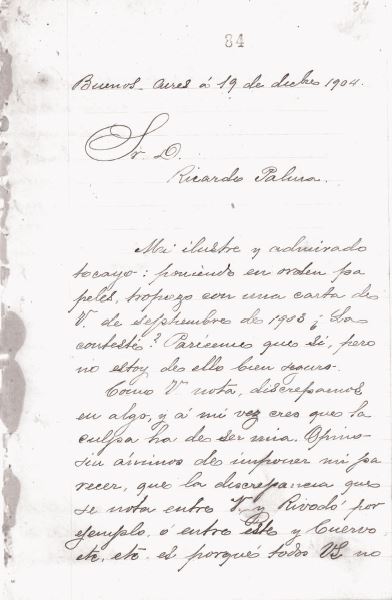 84
84
Buenos Aires á 19 de dicbre 1904.
Sr. D.
Ricardo Palma.
Mi ilustre y admirado
tocayo: poniendo en orden pa
peles, tropiezo con una carta de
V. de septiembre de 1903 ¿La
contesté? Pareceme que sí, pero
no estoy de ello bien seguro.
Como V. nota, discrepamos
en algo, y á mi vez creo que la
culpa ha de ser mia. Opino
sin ánimos de imponer mi pa
recer, que la discrepancia que
se nota entre V. y Rivodó por
ejemplo, ó entre éste y Cuervo
etc, etc. es porqué todos VS no